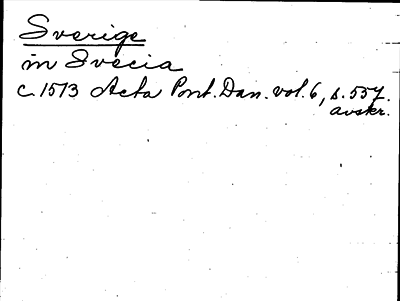 Sverige
in Svecia
c. 1513 Acta Pont. Dan. vol. 6, s. 557.
avskr.